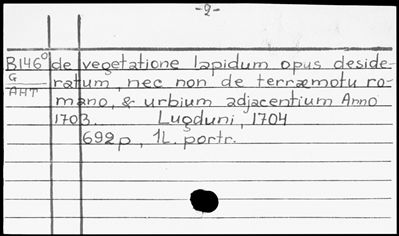 -2-
B146° de vegetatione lapidum opus deside-
G ratum, nec non de terræmotu ro-
AHT mano, & urbium adjacentium Anno
1703. Lugduni, 1704
692p, 1L. portr.